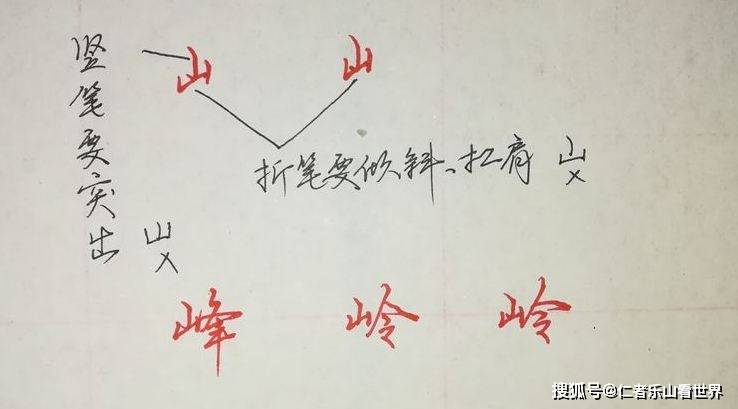 竖笔要突出
山
山
山
折笔要倾斜、扛肩
山
x
x
峰
岭
岭
搜狐号@仁者乐山看世界